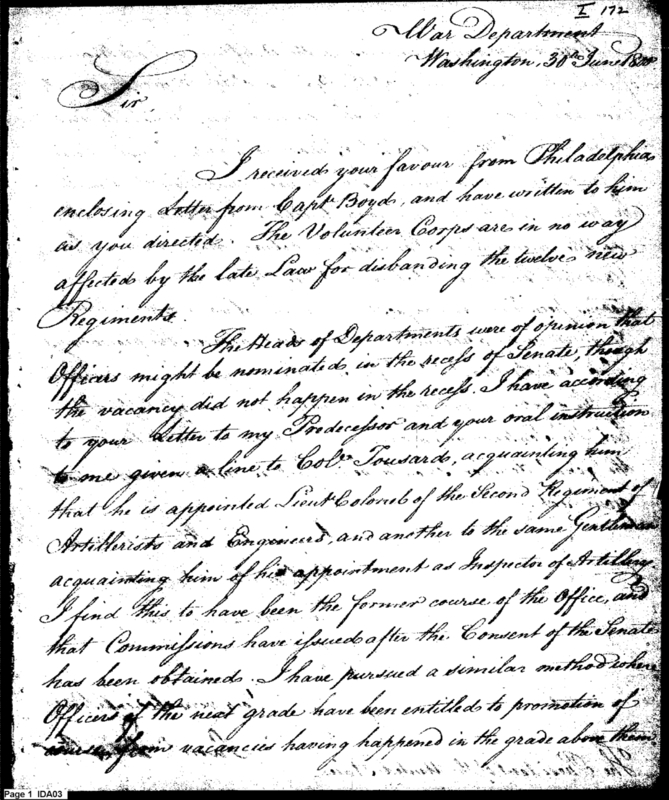 I 172
War Department
Washington, 30th June 1800
Sir,
I received your favour from Philadelphia
enclosing Letter from Capt Boyd, and have written to him
as you directed. The Volunteer Corps are in no way
affected by the late Law for disbanding the twelve new
Regiments.
The Heads of Departments were of opinion that
Officers might be nominated in the recess of Senate, though
the vacancy did not happen in the recess. I have according
to your Letter to my Predecessor and your oral instruction
to me given a line to Col. Tousard, acquainting him
that he is appointed Lieut Colonel of the Second Regiment of
Artillerists and Engineers, and another to the same Gentleman
acquainting him of his appointment as Inspector of Artillery
I find this to have been the former course of the Office, and
that Commissions have issued after the Consent of the Senate
has been obtained. I have pursued a similar method where
Officers of the next grade have been entitled to promotion of
course, from vacancies having happened in the grade above them.
Page 1 IDA03